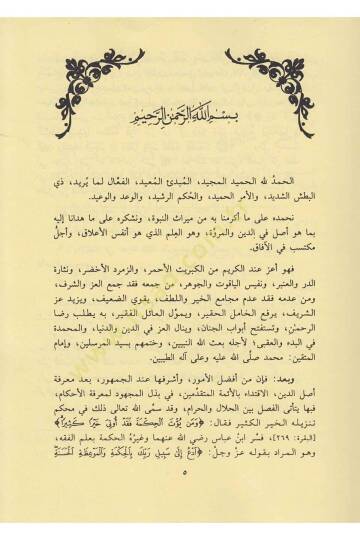 بسم الله الرحمن الرحيم
الحمدُ لله الحميد المجيد، المُبدئ المُعيد، الفعَّال لما يُريد، ذي
البطش الشديد، والأمر الحميد، والحُكم الرشيد، والوعد والوعيد.
نحمده على ما أكرمنا به من ميراث النبوة، ونشكره على ما هدانا إليه
بما هو أصل في الدين والمروَّة، وهو العِلم الذي هو أنفس الأعلاق، وأجلُّ
مكتسب في الآفاق.
فهو أعز عند الكريم من الكبريت الأحمر، والزمرد الأخضر، ونثارة
الدر والعنبر، ونفيس الياقوت والجوهر، من جمعه فقد جمع العز والشرف،
ومن عدمه فقد عدم مجامع الخير واللطف، يقوي الضعيف، ويزيد عز
الشريف، يرفع الخامل الحقير، ويموِّل العائل الفقير، به يطلب رضا
الرحمٰن، وتستفتح أبواب الجنان، وينال العز في الدين والدنيا، والمحمدة
في البدء والعقبى؛ لأجله بعث الله النبيين، وختمهم بسيد المرسلين، وإمام
المتقين: محمد صلَّى الله عليه وعلى آله الطيبين.
وبعد: فإن من أفضل الأمور، وأشرفها عند الجمهور، بعد معرفة
أصل الدين، الاقتداء بالأئمة المتقدِّمين، في بذل المجهود لمعرفة الأحكام،
فبها يتأتى الفصل بين الحلال والحرام، وقد سمَّى الله تعالى ذلك في محكم
تنزيله الخير الكثير فقال: ﴿وَمَن يُؤْتَ الْحِكْمَةَ فَقَدْ أُوتِيَ خَيْرًا كَثِيرًا﴾
[البقرة: ٢٦٩]، فسَّر ابنُ عباس رضي الله عنهما وغيرُهُ الحكمة بعلم الفقه،
وهو المراد بقوله عزَّ وجلَّ: ﴿ادْعُ إِلَى سَبِيلِ رَبِّكَ بِالْحِكْمَةِ وَالْمَوْعِظَةِ الْحَسَنَةِ
٥